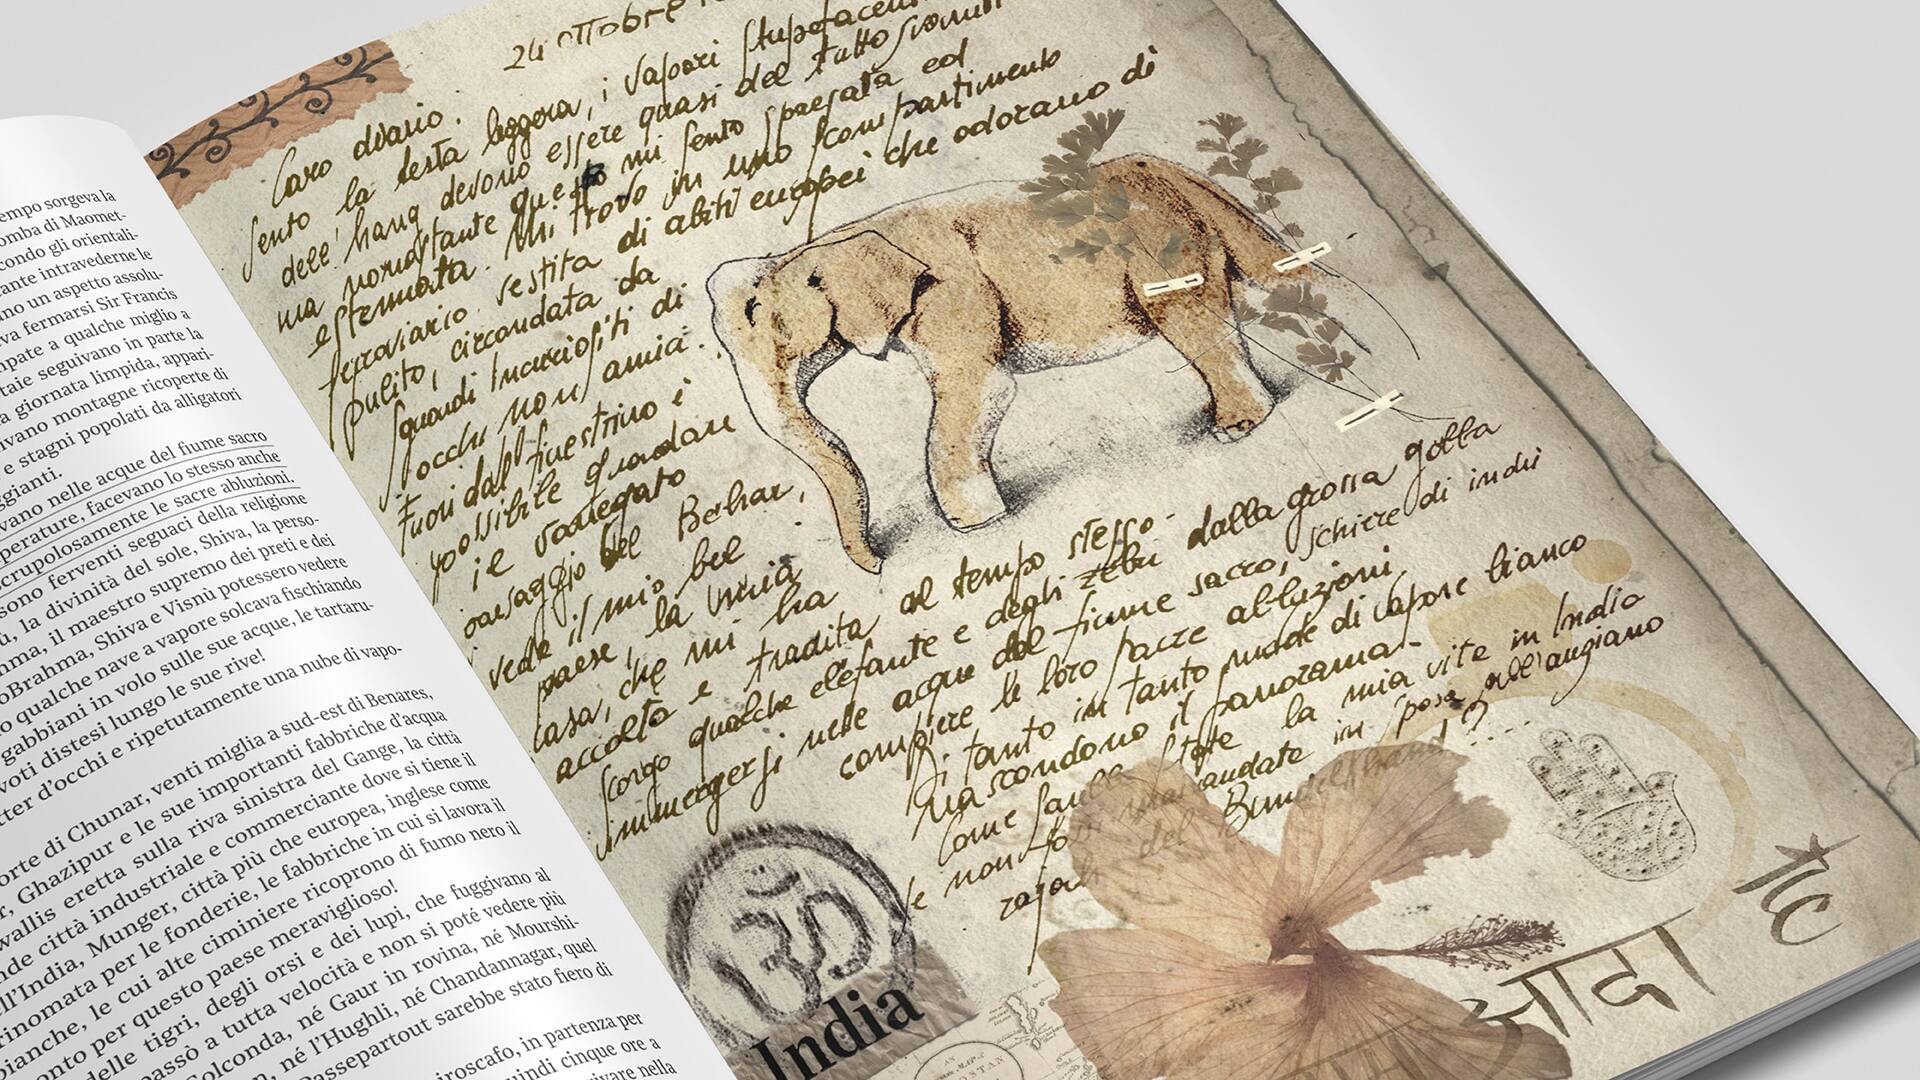 empo sorgeva la
omba di Maomet-
condo gli orientali-
tante intravederne le
no un aspetto assolu-
va fermarsi Sir Francis
pate a qualche miglio a
taie seguivano in parte la
a giornata limpida, appari-
ivano montagne ricoperte di
e stagni popolati da alligatori
ggianti.
vano nelle acque del fiume sacro
perature, facevano lo stesso anche
crupolosamente le sacre abluzioni.
sono ferventi seguaci della religione
ù, la divinità del sole, Shiva, la perso-
hma, il maestro supremo dei preti e dei
o Brahma, Shiva e Visnù potessero vedere
o qualche nave a vapore solcava fischiando
gabbiani in volo sulle sue acque, le tartaru-
voti distesi lungo le sue rive!
tter d'occhi e ripetutamente una nube di vapo-
orte di Chunar, venti miglia a sud-est di Benares,
r, Ghazipur e le sue importanti fabbriche d'acqua
wallis eretta sulla riva sinistra del Gange, la città
nde città industriale e commerciante dove si tiene il
ll'India, Munger, città più che europea, inglese come
rinomata per le fonderie, le fabbriche in cui si lavora il
bianche, le cui alte ciminiere ricoprono di fumo nero il
onto per questo paese meraviglioso!
delle tigri, degli orsi e dei lupi, che fuggivano al
passò a tutta velocità e non si poté vedere più
Golconda, né Gaur in rovina, né Mourshi-
n, né l'Hughli, né Chandannagar, quel
Passepartout sarebbe stato fiero di
iroscafo, in partenza per
quindi cinque ore a
rivare nella
24 ottobre
Caro diario.
Sento la testa leggera, i vapori stupefacenti
dell'hang devono essere quasi del tutto svaniti
ma nonostante questo mi sento spaesata ed
estenuata. Mi trovo in uno scompartimento
ferroviario vestita di abiti europei che odorano di
pulito, circondata da
sguardi incuriositi di
occhi non amici.
Fuori dal finestrino è
possibile guardare
il variegato
paesaggio del Behar,
vedo il mio bel
paese, la mia
casa, che mi ha
accolta e tradita al tempo stesso.
Scorgo qualche elefante e degli zebù dalla grossa gobba
immergersi nelle acque del fiume sacro, schiere di indù
compiere le loro sacre abluzioni.
Di tanto in tanto nuvole di vapore bianco
nascondono il panorama.
Come sarebbe stata la mia vita in India
se non fossi mai andata in sposa all'anziano
rajah del Bundelkhand?...
ॐ
India
आदा